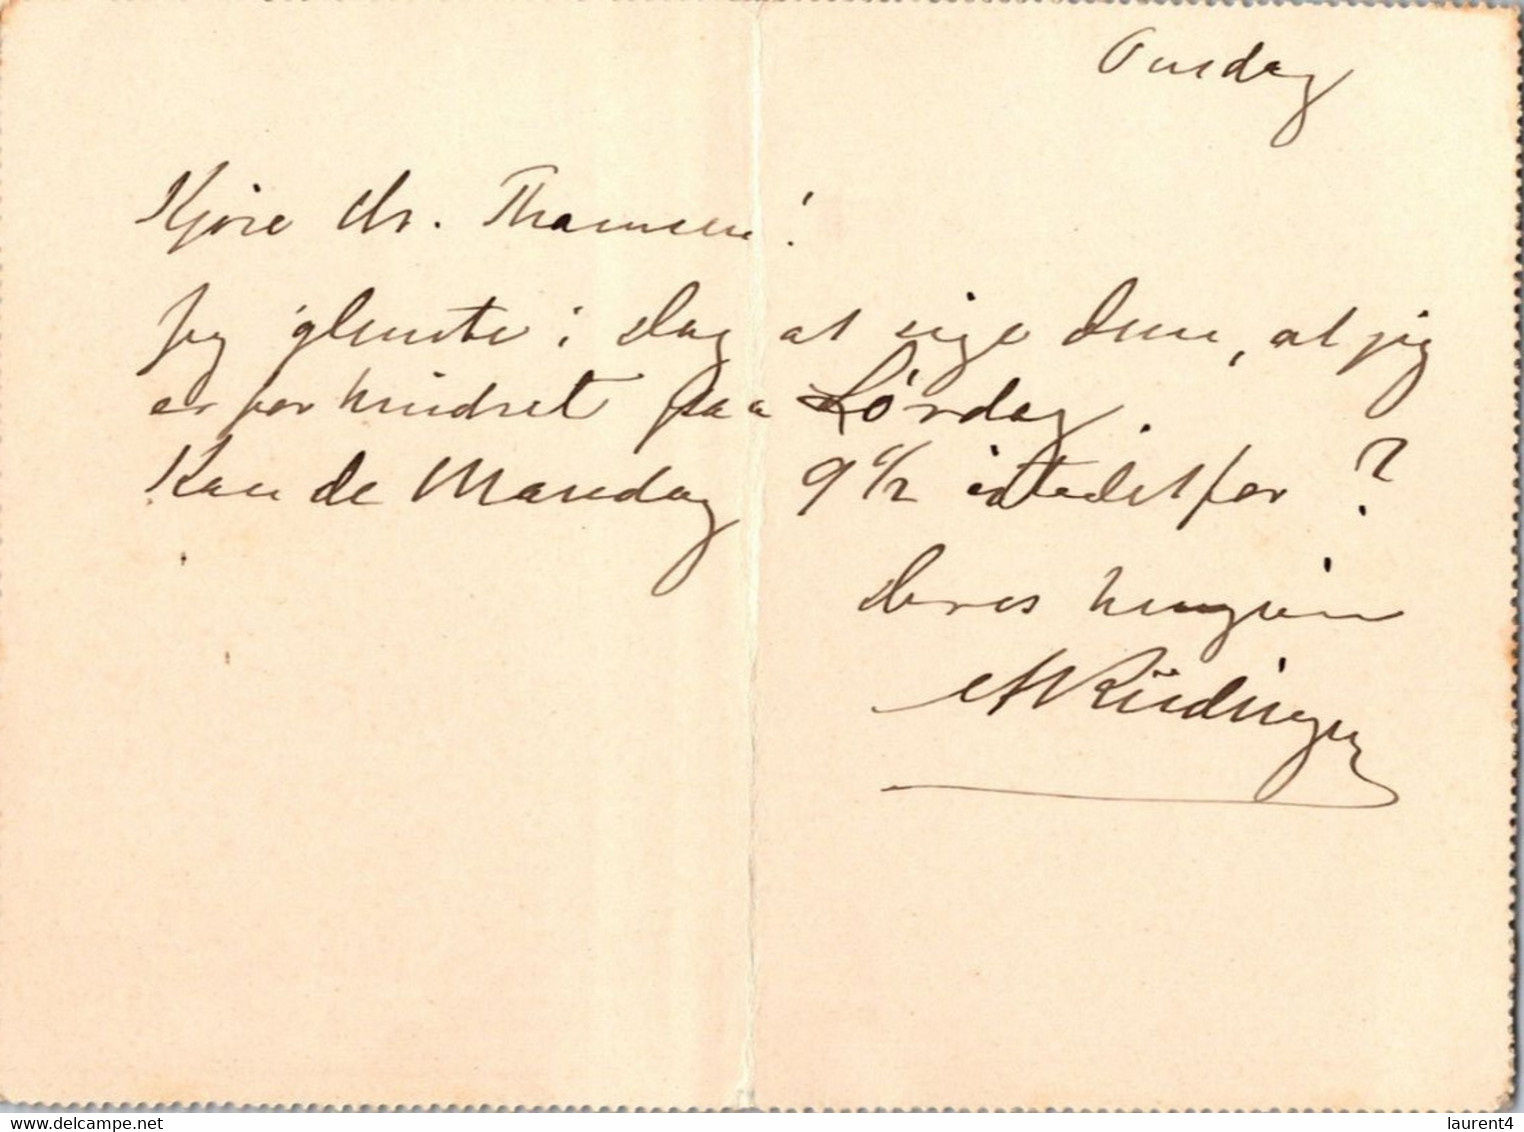 Onsdag
Kjöre Hr. Thomsen!
Jeg glemte i Dag at sige Dem, at jeg
er forhindret paa Lørdag.
Kan de Mandag 9 1/2 istedetfor?
Deres hengivne
A Rüdinger
www.delcampe.net
laurent4